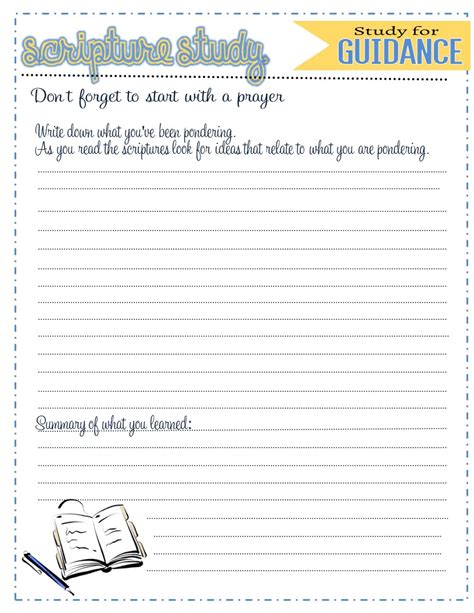 scripture study
Study for
GUIDANCE
Don't forget to start with a prayer
Write down what you've been pondering.
As you read the scriptures look for ideas that relate to what you are pondering.
Summary of what you learned: